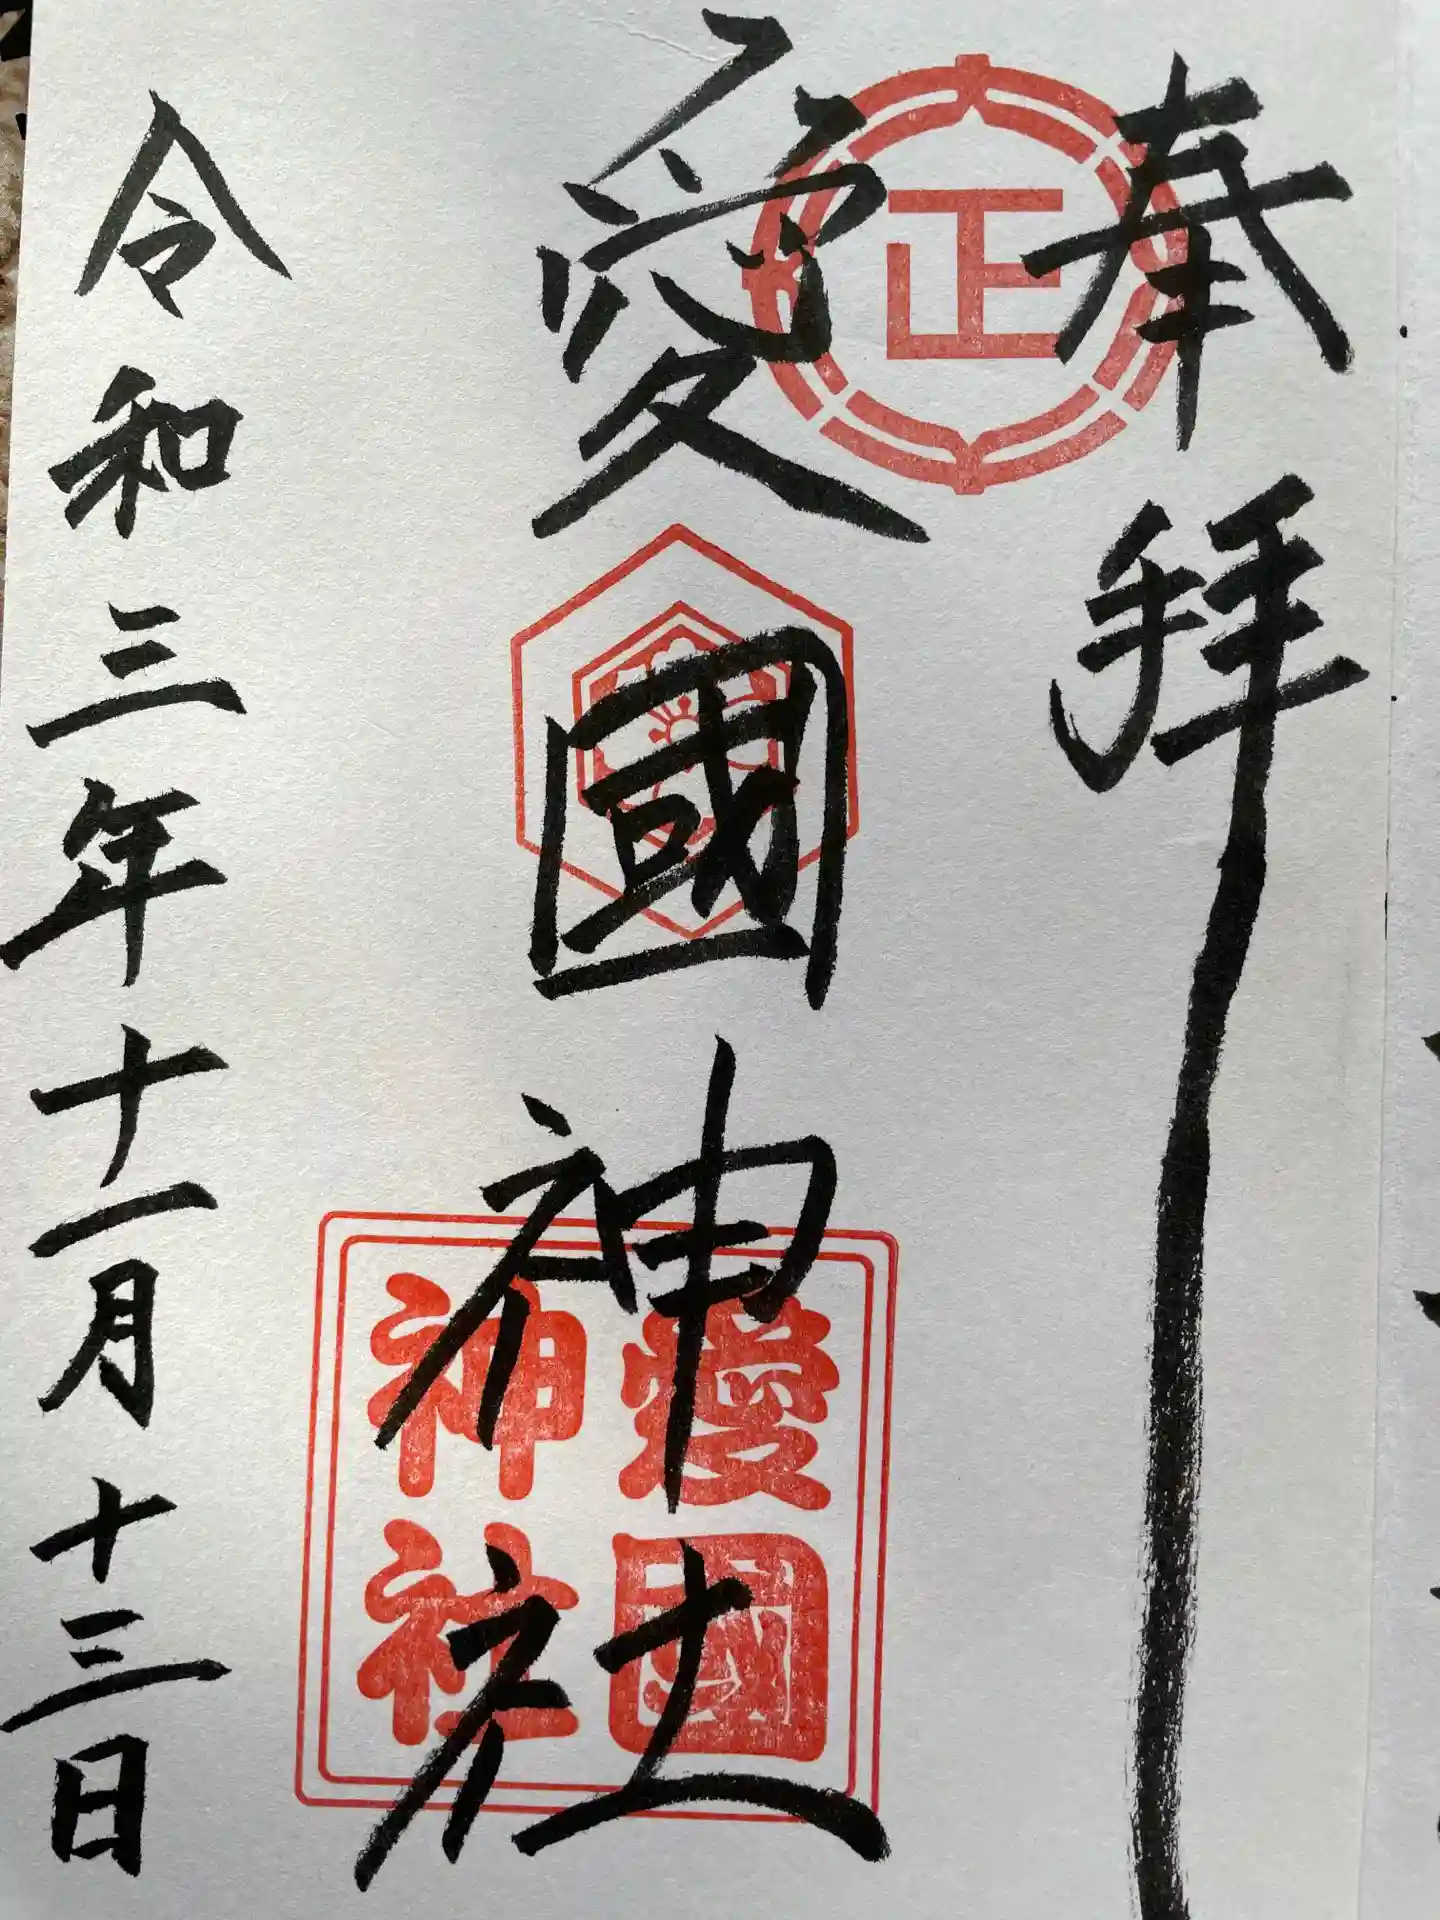 奉拝
正
愛國神社
愛國
神社
令和三年十一月十三日